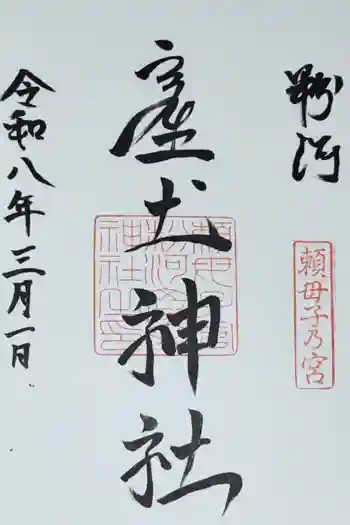 粉河
頼母子乃宮
産土神社
令和八年三月一日